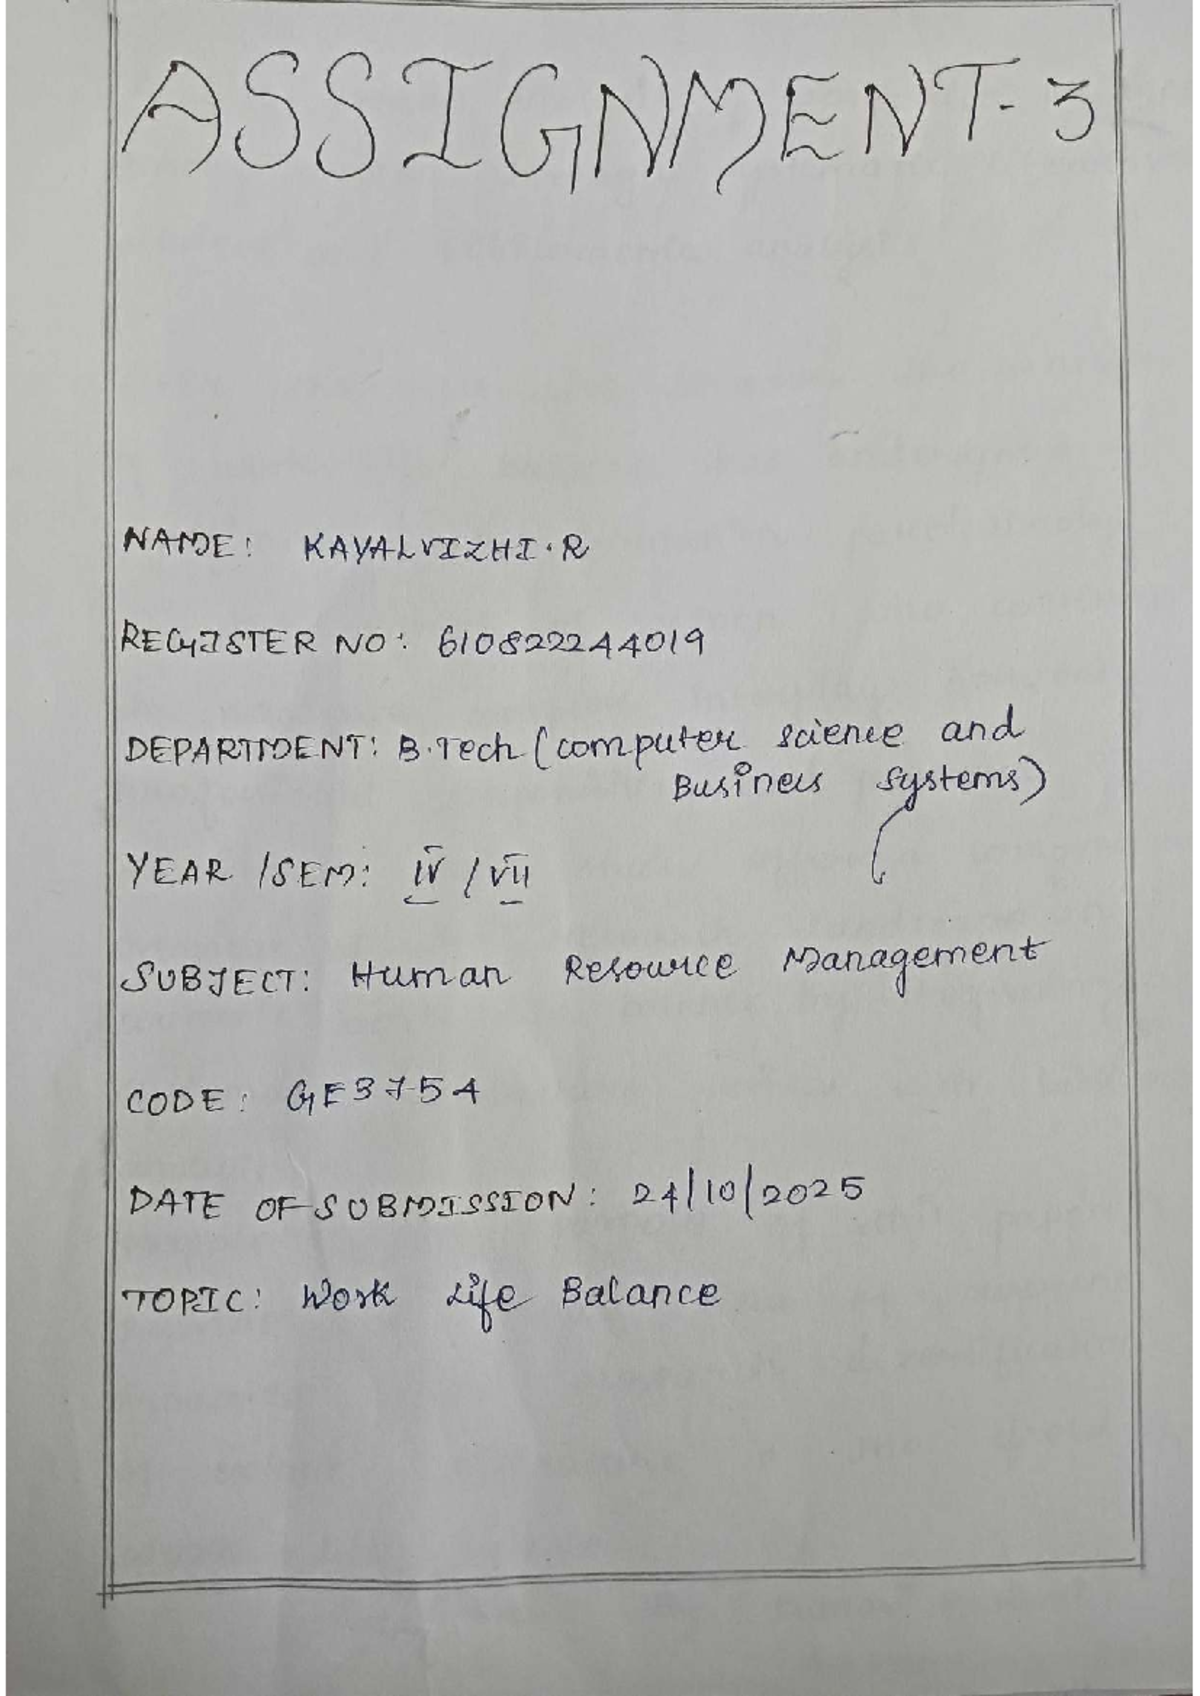 ASSIGNMENT-3
NAME: KAYALVIZHI.R
REGISTER NO: 610822244019
DEPARTMENT: B.Tech (computer science and
Business systems)
YEAR /SEM: IV / VII
SUBJECT: Human Resource Management
CODE: GE3754
DATE OF SUBMISSION: 24/10/2025
TOPIC: Work Life Balance